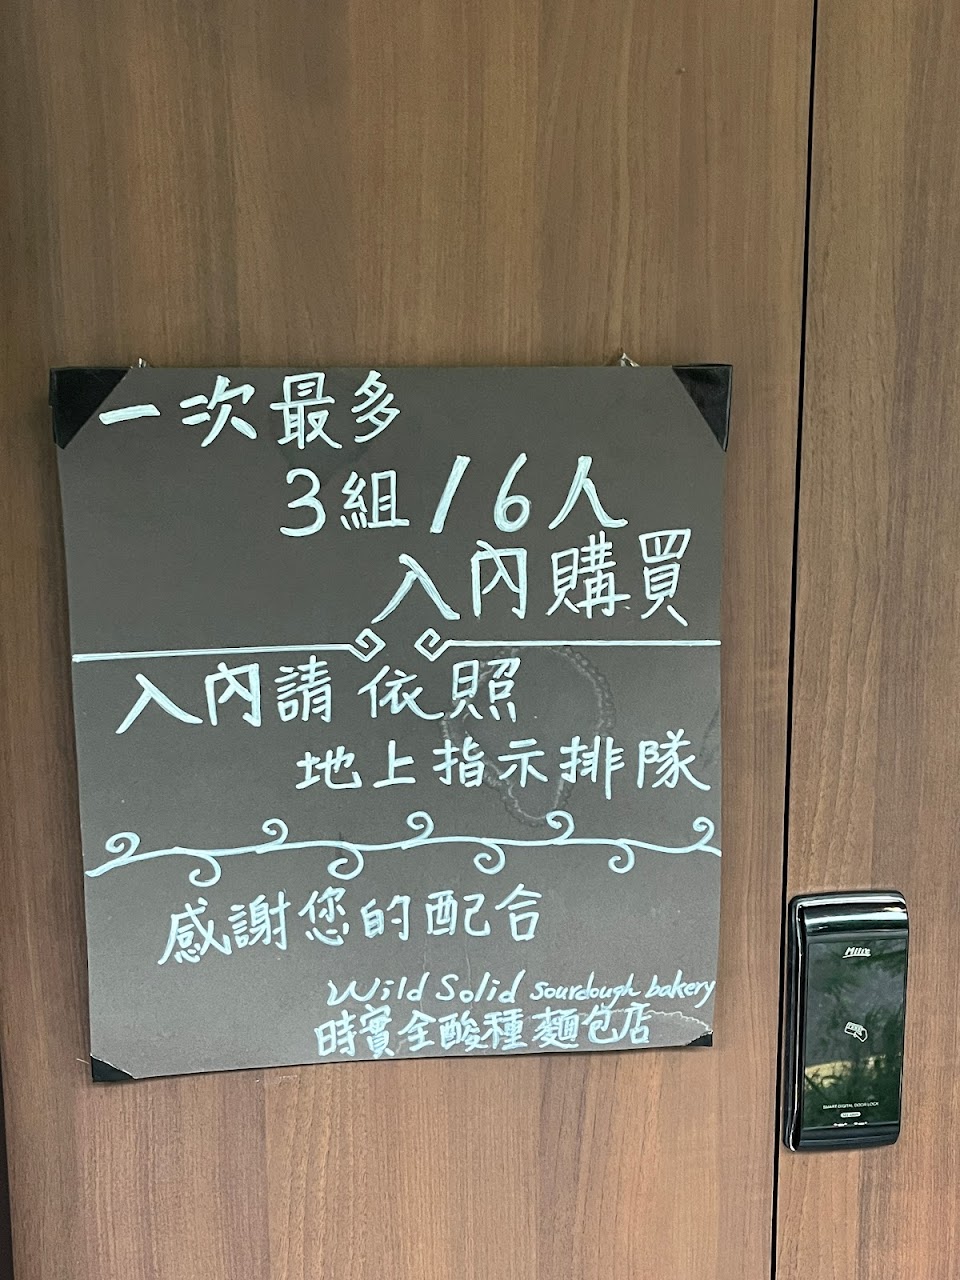 一次最多
3組/6人
入內購買
入內請依照
地上指示排隊
感謝您的配合
Wild Solid sourdough bakery
時實全酸種麵包店
SMART DIGITAL DOOR LOCK